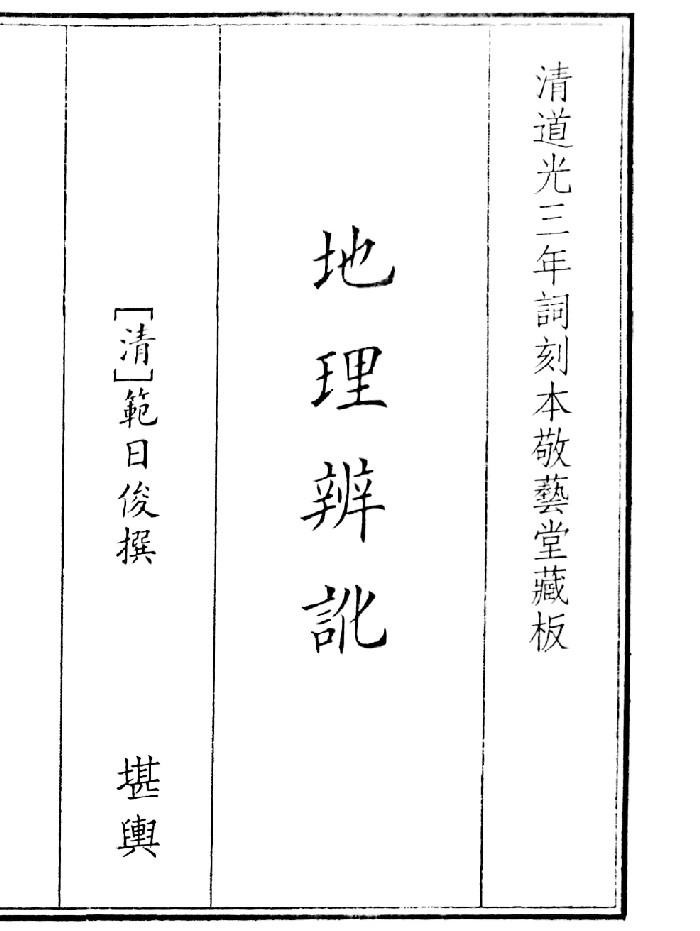 清道光三年詞刻本敬藝堂藏板
地理辨訛
[清]範日俊撰
堪輿